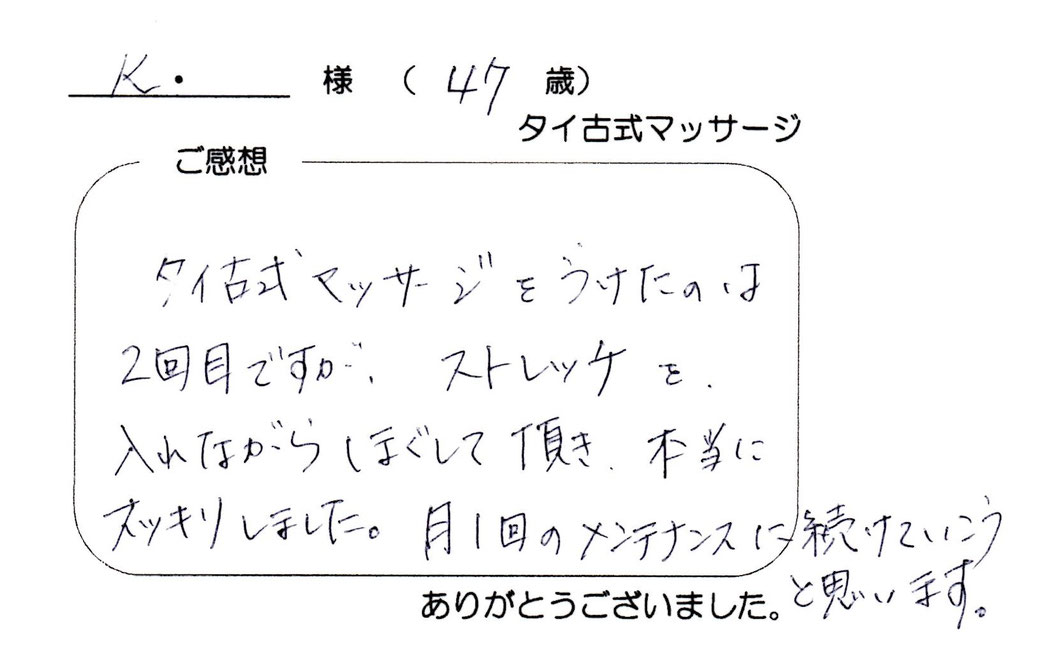 K. 様 （ 47 歳）
タイ古式マッサージ
ご感想
タイ古式マッサージをうけたのは
2回目ですが、ストレッチを、
入れながらほぐして頂き、本当に
スッキリしました。月1回のメンテナンスに続けていこう
と思います。
ありがとうございました。